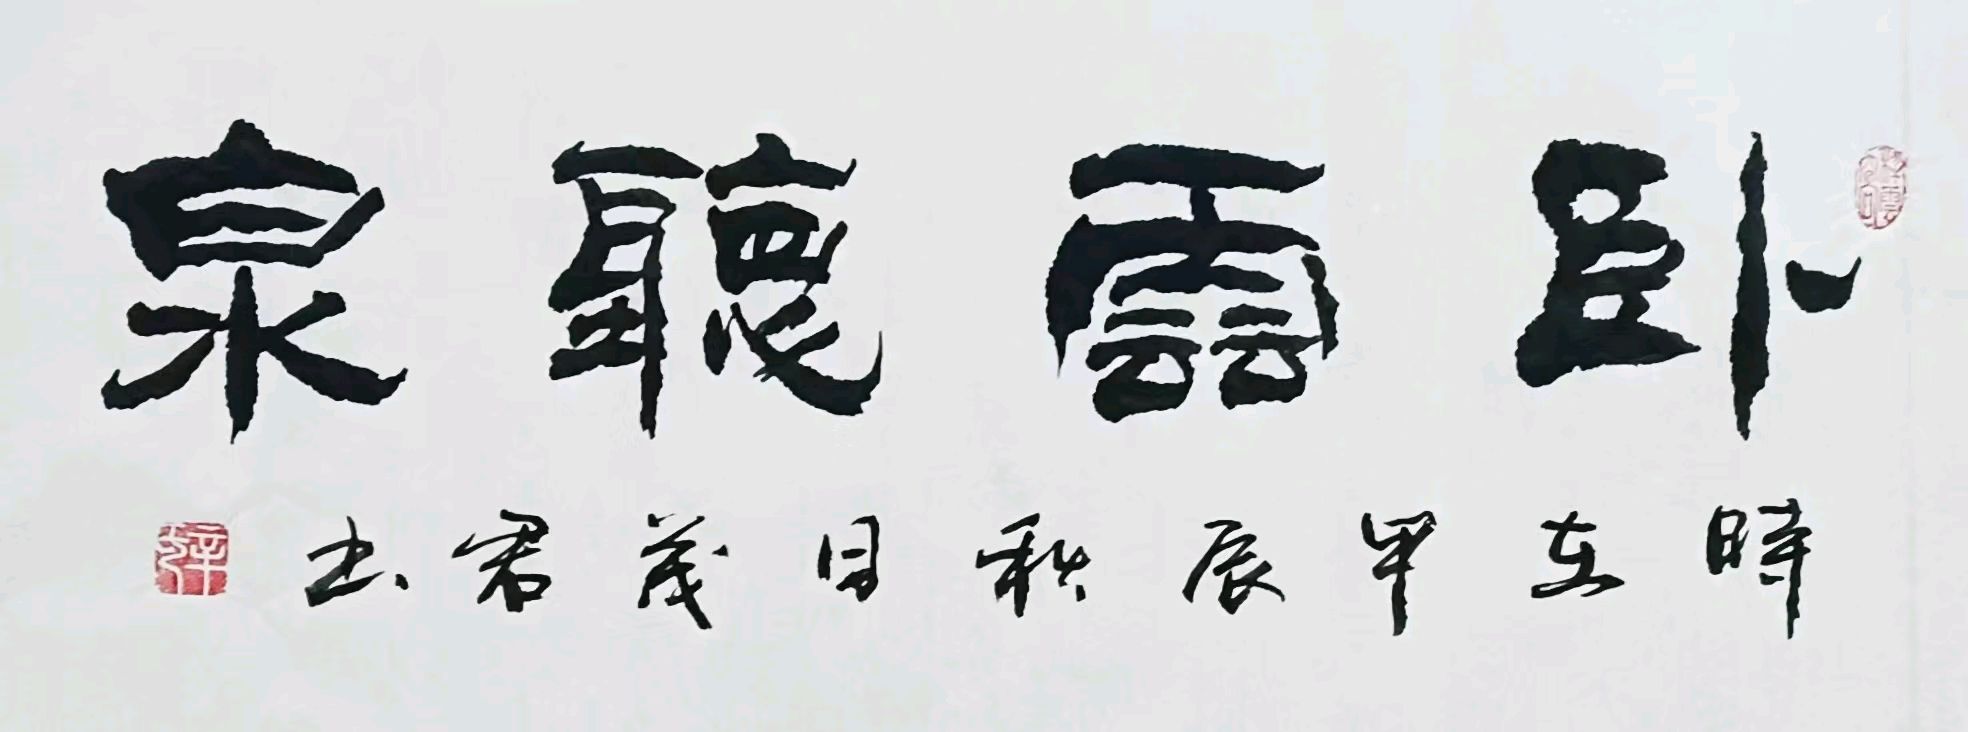 卧雲聽泉
時在甲辰秋日茂君书